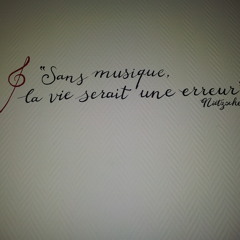 "Sans musique,
la vie serait une erreur"
Nietzsche